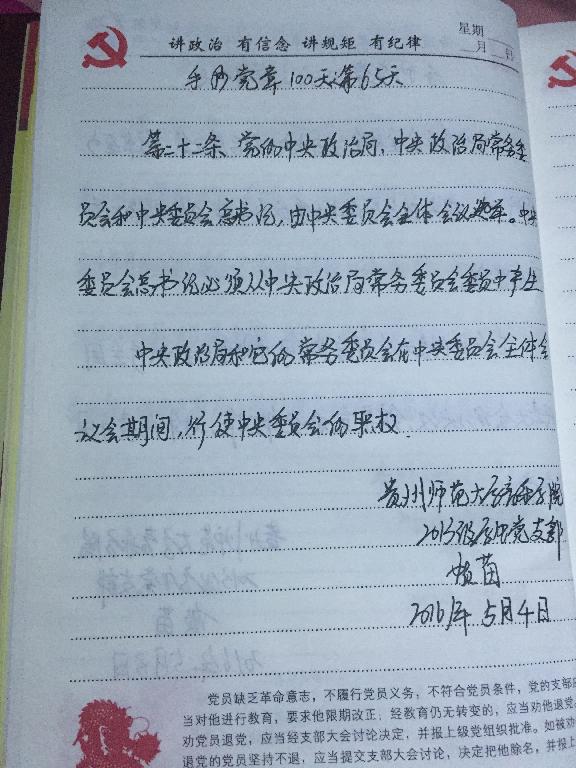 星期
讲政治 有信念 讲规矩 有纪律
月 日
手抄党章100天第65天
第二十二条 党的中央政治局、中央政治局常务委
员会和中央委员会总书记,由中央委员会全体会议选举。中央
委员会总书记必须从中央政治局常务委员会委员中产生
中央政治局和它的常务委员会在中央委员会全体会
议会期间,行使中央委员会的职权.
贵州师范大学 学院
党支部
苗
2016年5月4日
党员缺乏革命意志,不履行党员义务,不符合党员条件,党的支部应
当对他进行教育,要求他限期改正;经教育仍无转变的,应当劝他退党。
劝党员退党,应当经支部大会讨论决定,并报上级党组织批准。如被劝
退党的党员坚持不退,应当提交支部大会讨论,决定把他除名,并报上